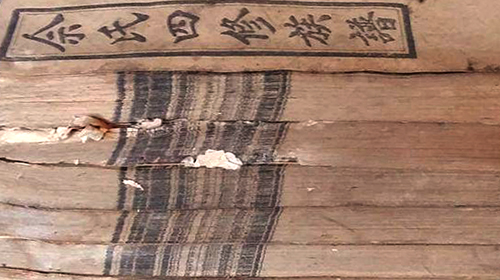 余氏四修族譜